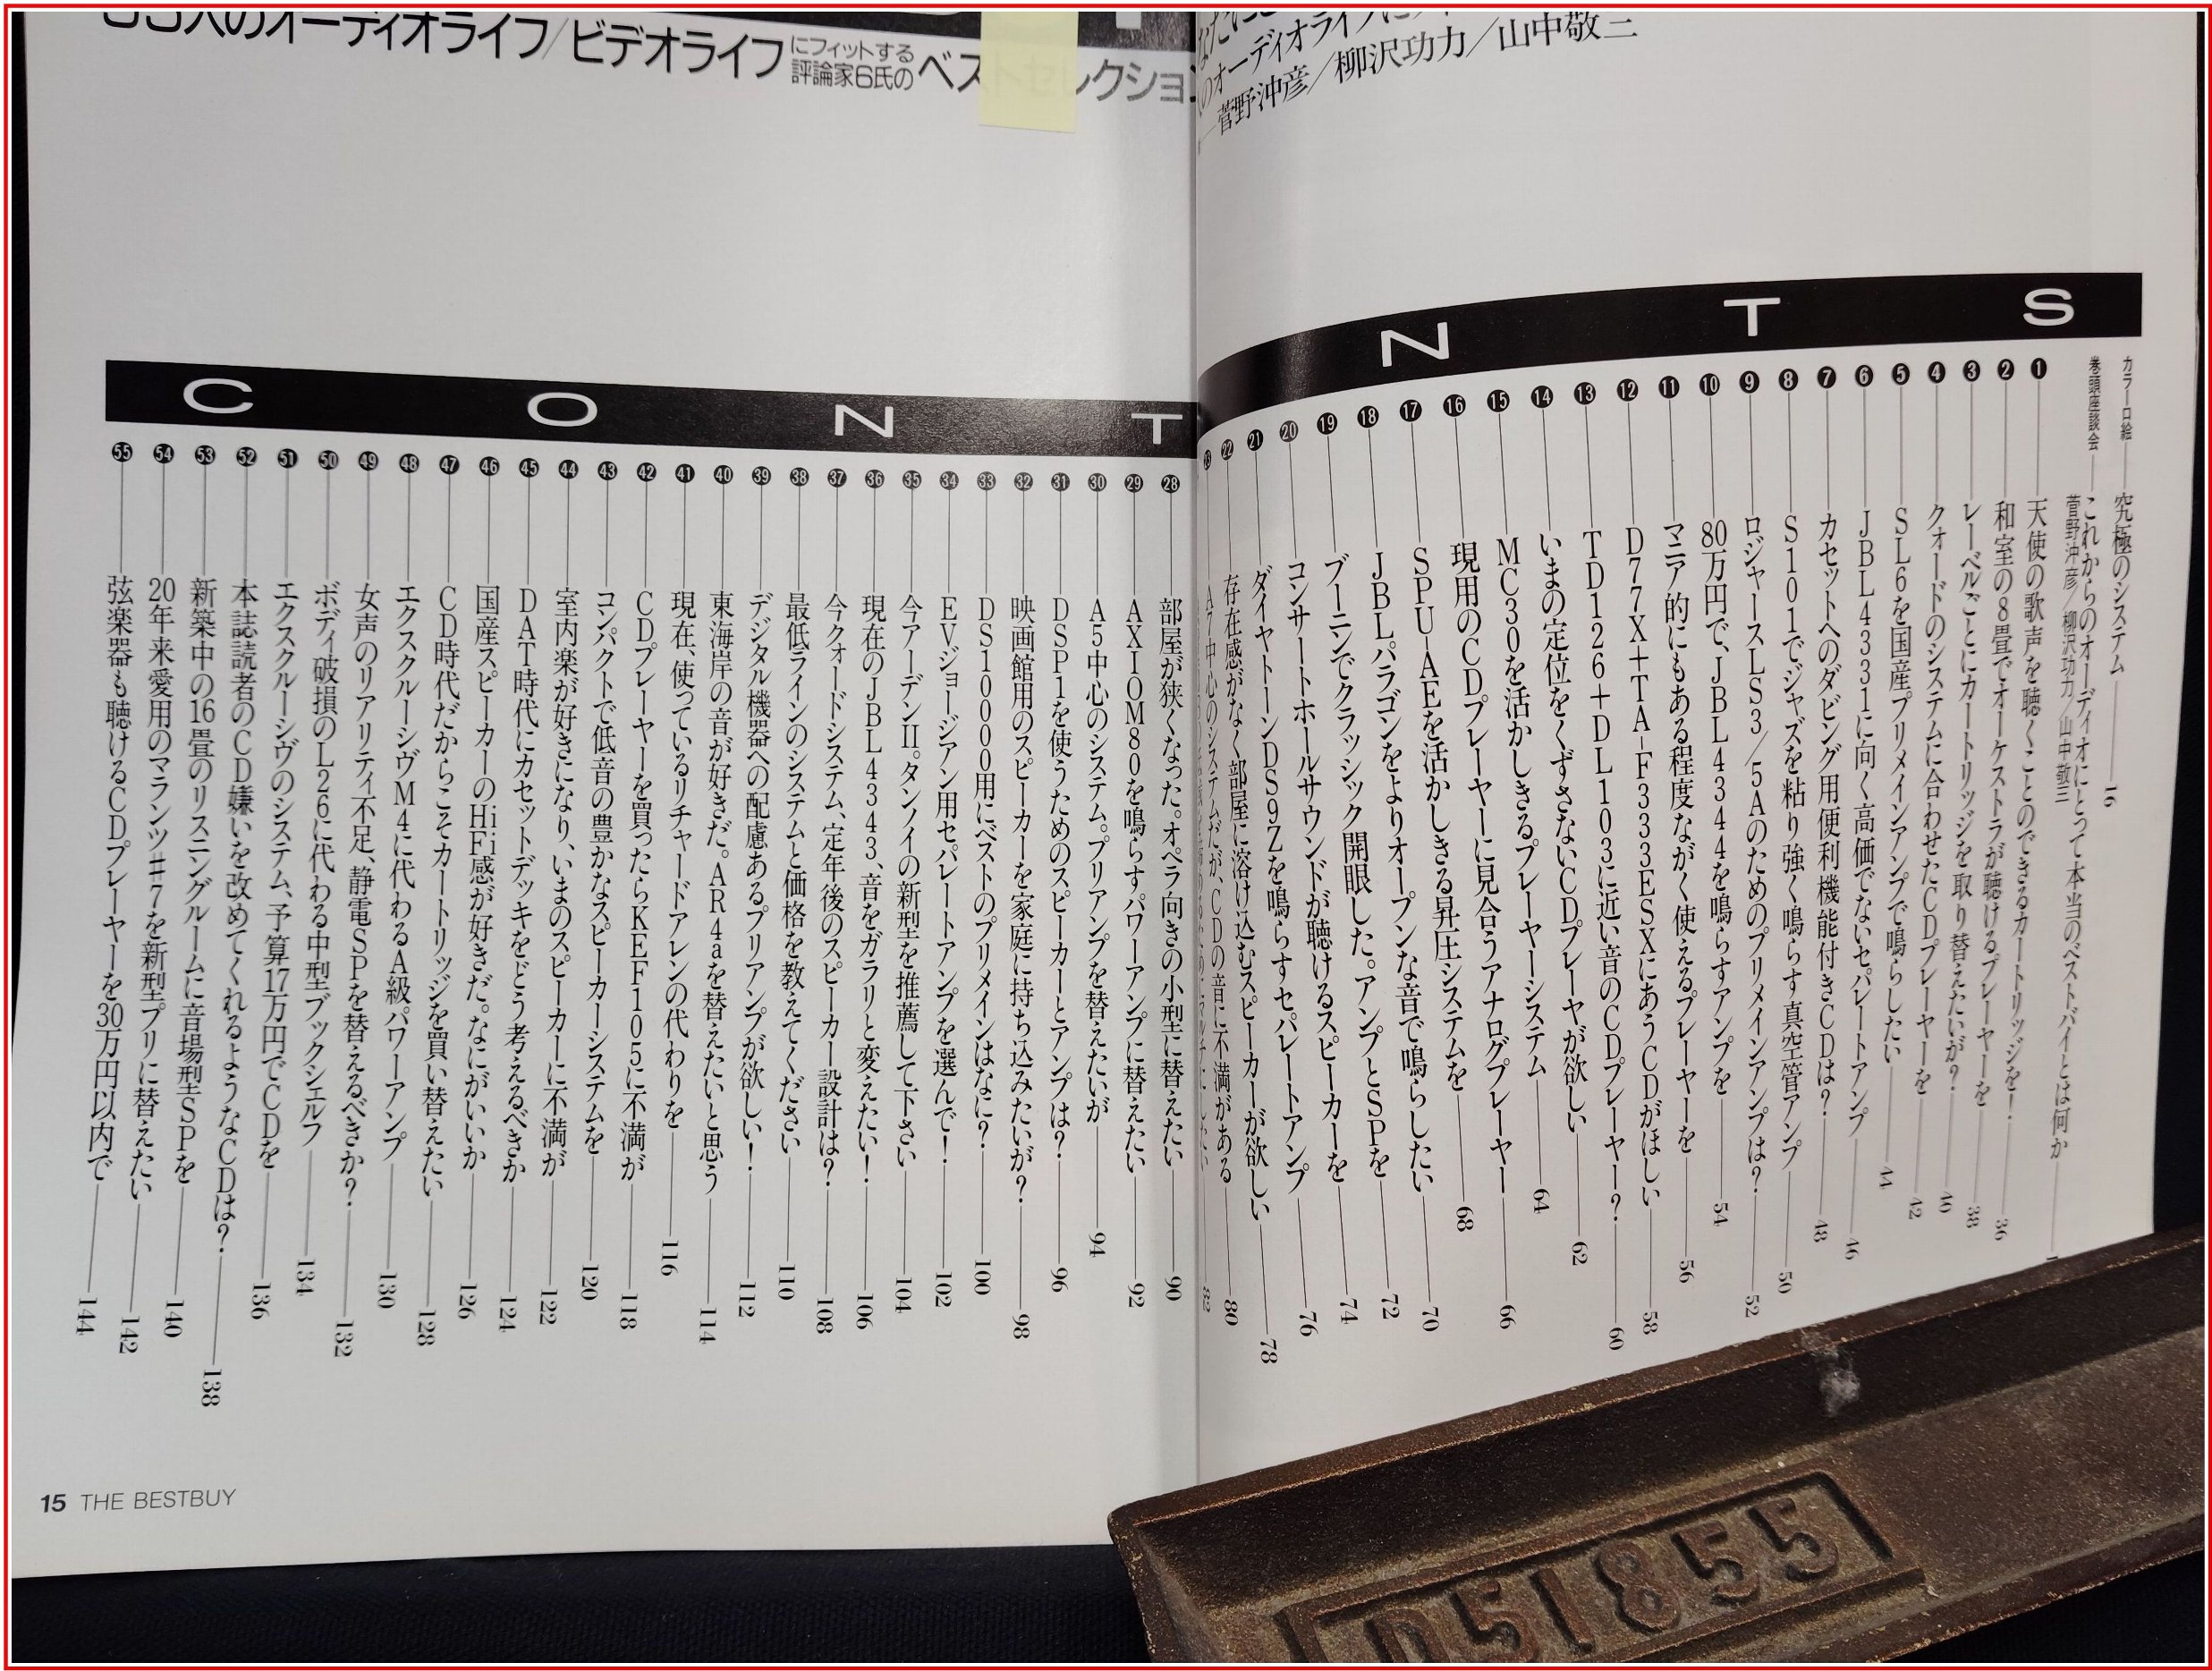 のオーディオライフ/ビデオライフ
にフィットする
評論家6氏の
ベストセレクショ
のオーディオライフに
菅野沖彦/柳沢功力/山中敬三
CONT
NTS
カラー口絵 究極のシステム 16
巻頭座談会 これからのオーディオにとって本当のベストバイとは何か
菅野沖彦/柳沢功力/山中敬三
❶ 天使の歌声を聴くことのできるカートリッジを! 36
❷ 和室の8畳でオーケストラが聴けるプレーヤーを 38
❸ レーベルごとにカートリッジを取り替えたいが? 40
❹ クォードのシステムに合わせたCDプレーヤーを 42
❺ SL6を国産プリメインアンプで鳴らしたい 44
❻ JBL4331に向く高価でないセパレートアンプ 46
❼ カセットへのダビング用便利機能付きCDは? 48
❽ S101でジャズを粘り強く鳴らす真空管アンプ 50
❾ ロジャースLS3/5Aのためのプリメインアンプは? 52
❿ 80万円で、JBL4344を鳴らすアンプを 54
⓫ マニア的にもある程度ながく使えるプレーヤーを 56
⓬ D77X+TA-F333ESXにあうCDがほしい 58
⓭ TD126+DL103に近い音のCDプレーヤー? 60
⓮ いまの定位をくずさないCDプレーヤが欲しい 62
⓯ MC30を活かしきるプレーヤーシステム 64
⓰ 現用のCDプレーヤーに見合うアナログプレーヤー 66
⓱ SPU-AEを活かしきる昇圧システムを 68
⓲ JBLパラゴンをよりオープンな音で鳴らしたい 70
⓳ ブーニンでクラッシック開眼した。アンプとSPを 72
⓴ コンサートホールサウンドが聴けるスピーカーを 74
㉑ ダイヤトーンDS9Zを鳴らすセパレートアンプ 76
㉒ 存在感がなく部屋に溶け込むスピーカーが欲しい 78
㉓ A7中心のシステムだが、CDの音に不満がある 80
82
㉘ 部屋が狭くなった。オペラ向きの小型に替えたい 90
㉙ AXIOM80を鳴らすパワーアンプに替えたい 92
㉚ A5中心のシステム。プリアンプを替えたいが 94
㉛ DSP1を使うためのスピーカーとアンプは? 96
㉜ 映画館用のスピーカーを家庭に持ち込みたいが? 98
㉝ DS10000用にベストのプリメインはなに? 100
㉞ EVジョージアン用セパレートアンプを選んで! 102
㉟ 今アーデンII。タンノイの新型を推薦して下さい 104
㊱ 現在のJBL4343、音をガラリと変えたい! 106
㊲ 今クォードシステム、定年後のスピーカー設計は? 108
㊳ 最低ラインのシステムと価格を教えてください 110
㊴ デジタル機器への配慮あるプリアンプが欲しい! 112
㊵ 東海岸の音が好きだ。AR4aを替えたいと思う 114
㊶ 現在、使っているリチャードアレンの代わりを 116
㊷ CDプレーヤーを買ったらKEF105に不満が 118
㊸ コンパクトで低音の豊かなスピーカーシステムを 120
㊹ 室内楽が好きになり、いまのスピーカーに不満が 122
㊺ DAT時代にカセットデッキをどう考えるべきか 124
㊻ 国産スピーカーのHiFi感が好きだ。なにがいいか 126
㊼ CD時代だからこそカートリッジを買い替えたい 128
㊽ エクスクルーシヴM4に代わるA級パワーアンプ 130
㊾ 女声のリアリティ不足、静電SPを替えるべきか? 132
㊿ ボディ破損のL26に代わる中型ブックシェルフ 134
51 エクスクルーシヴのシステム、予算17万円でCDを 136
52 本誌読者のCD嫌いを改めてくれるようなCDは? 138
53 新築中の16畳のリスニングルームに音場型SPを 140
54 20年来愛用のマランツ#7を新型プリに替えたい 142
55 弦楽器も聴けるCDプレーヤーを30万円以内で 144
15 THE BESTBUY
D51855